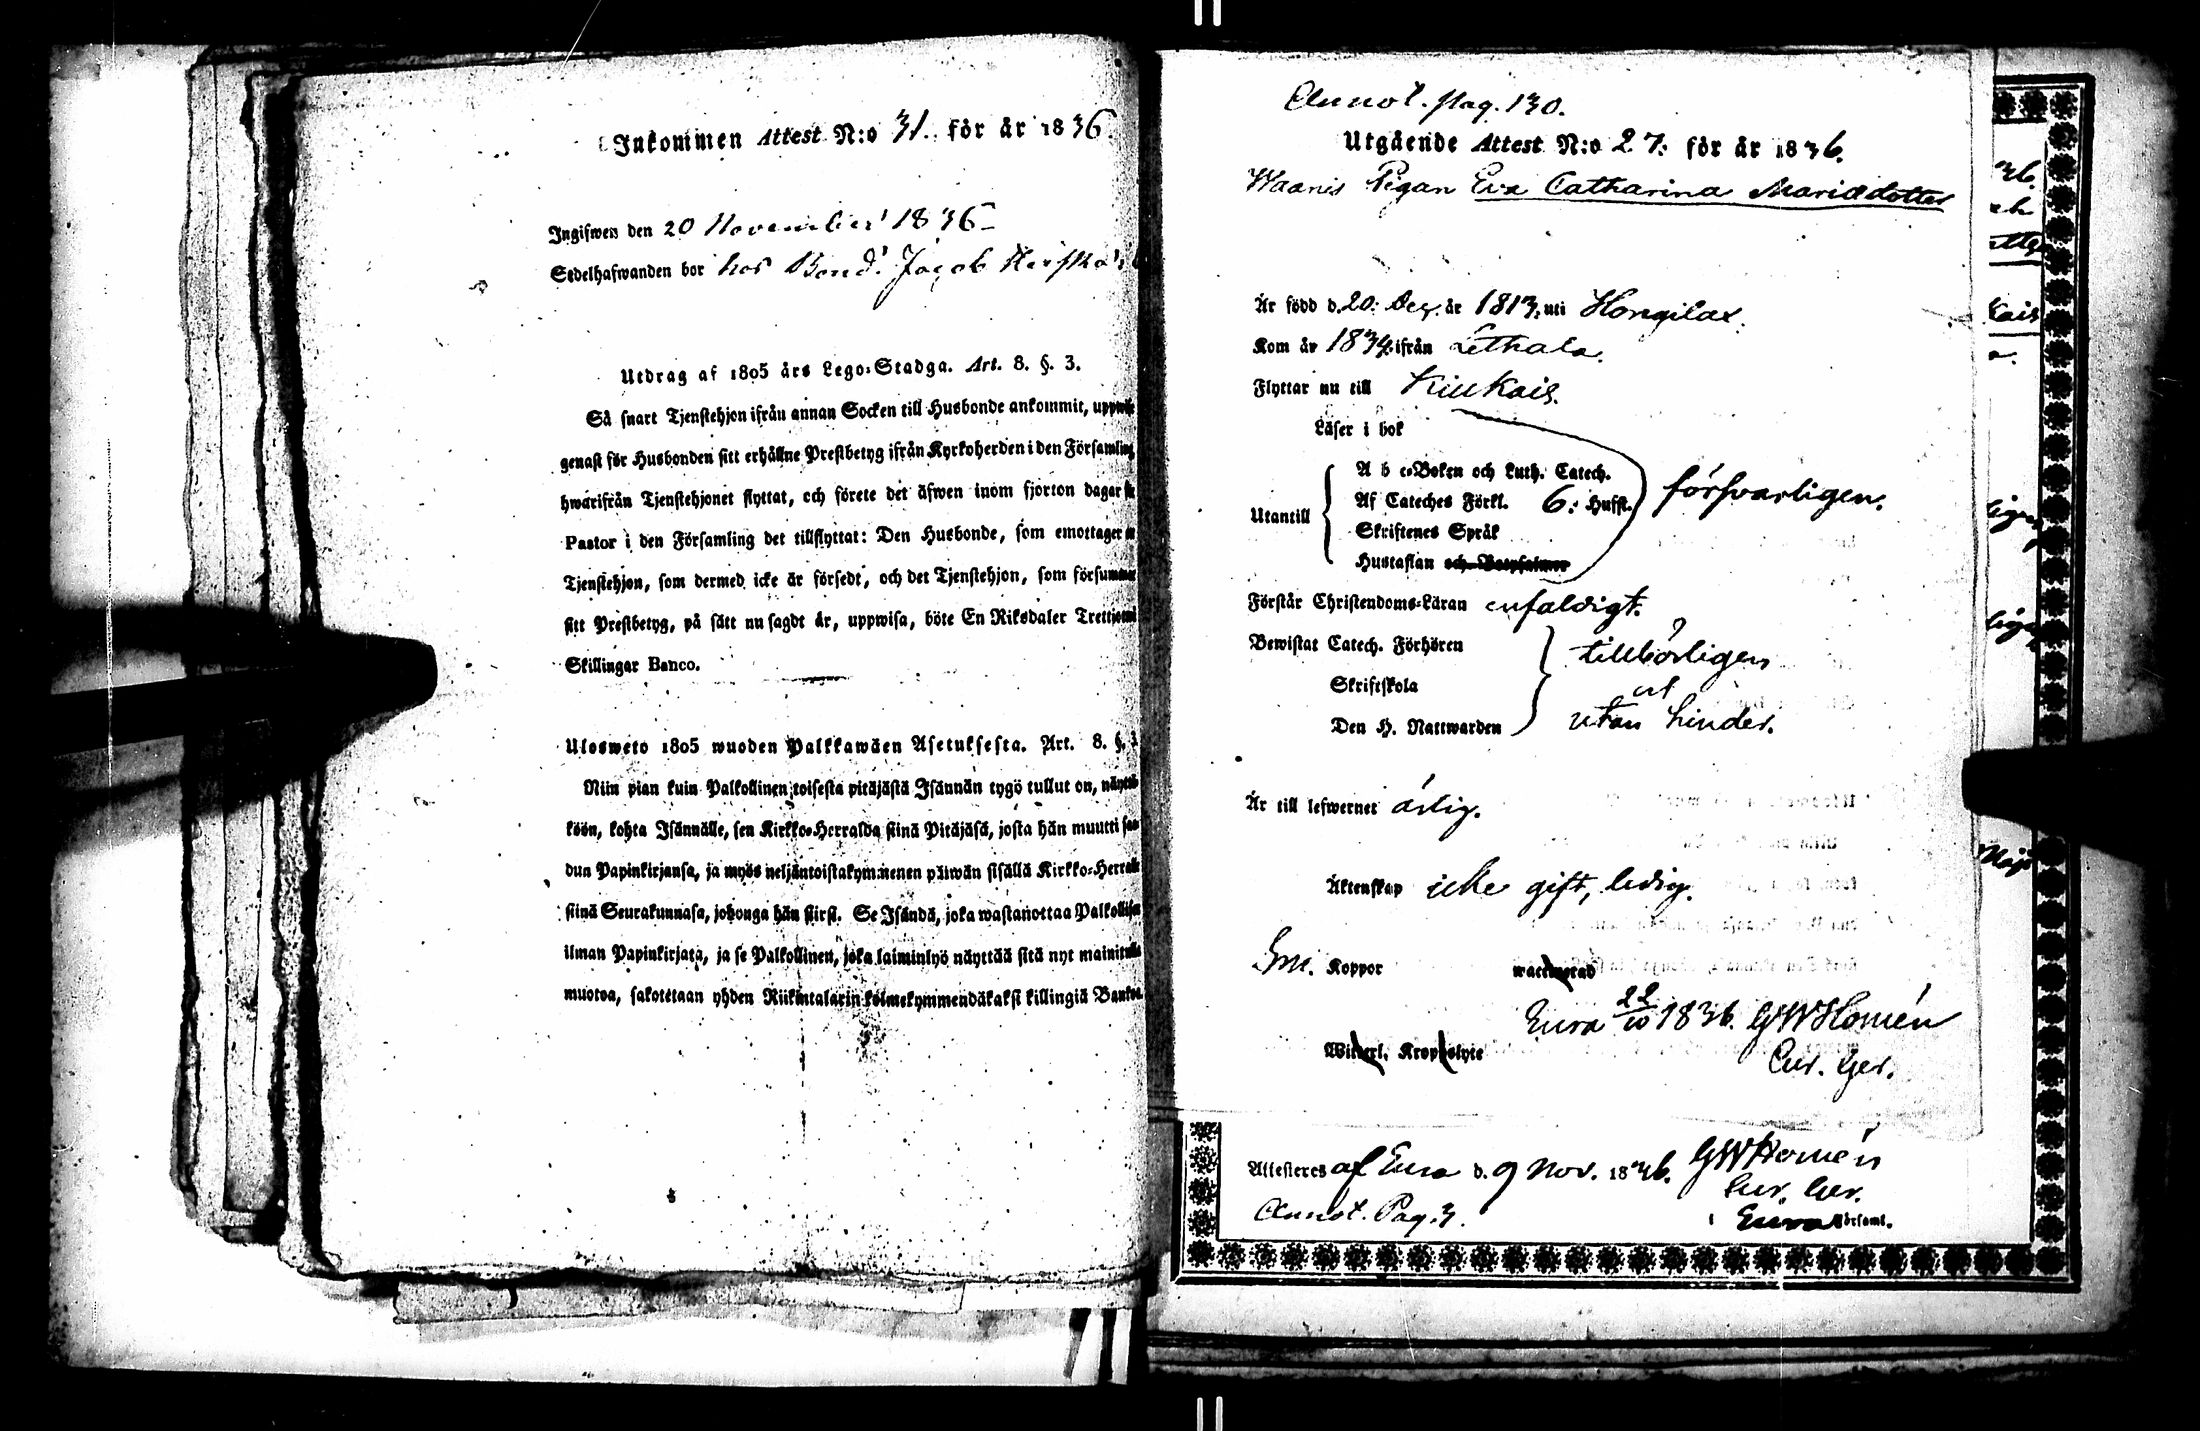 Inkommen Attest N:o 31. för år 1836.
Ingifwen den 20 November 1836
Sedelhafwanden bor hos Bond. Jacob
Utdrag af 1805 års Lego-Stadga. Art. 8. §. 3.
Så snart Tjenstehjon ifrån annan Socken till Husbonde ankommit, uppwise
genast för Husbonden sitt erhållne Prestbetyg ifrån Kyrkoherden i den Församling
hwarifrån Tjenstehjonet flyttat, och förete det äfwen inom fjorton dagar
Pastor i den Församling det tillflyttat: Den Husbonde, som emottager
Tjenstehjon, som dermed icke är försedt, och det Tjenstehjon, som försummar
sitt Prestbetyg, på sätt nu sagdt är, uppwisa, böte En Riksdaler Trettjotwå
Skillingar Banco.
Ulosweto 1805 wuoden Palkkawäen Asetuksesta. Art. 8. §. 3
Niin pian kuin Palkollinen toisesta pitäjästä Isännän tygö tullut on, näyttä-
köön, kohta Isännälle, sen Kirkko-Herralda siinä Pitäjäsä, josta hän muutti saa-
dun Papinkirjansa, ja myös neljäntoistakymmenen päiwän sisällä Kirkko-Herralle
siinä Seurakunnasa, johonga hän siirsi. Se Isändä, joka wastanottaa Palkollisen
ilman Papinkirjata, ja se Palkollinen, joka laiminlyö näyttää sitä nyt mainitulla
muotoa, sakotetaan yhden Riikintalarin kolmekymmendäkaksi killingiä Bankoa
Annot. Pag. 130.
Utgående Attest N:o 27. för år 1836.
Waanis Pigan Eva Catharina Mariædotter
Är född d. 20. Dec. år 1813. uti Hongilax.
Kom år 1834. ifrån Lethala.
Flyttar nu till Kiukais.
Läser i bok
A b c-Boken och Luth. Catech.
Af Cateches Förkl. 6: Hufst. försvarligen.
Utantill
Skriftenes Språk
Hustaflan och Botpsalmer
Förstår Christendoms-Läran enfaldigt.
Bewistat Catech. Förhören tillbörligen
Skriftskola
Den H. Nattwarden utan hinder.
Är till lefwernet ärlig.
Äktenskap icke gift, ledig.
Koppor waccinerad
Eura 22/10 1836. GWHomén
Witterl. Kroppslyte Cur. Ger.
Attesteres af Eura d. 9 Nov. 1836. GWHomén
Cur. Ger.
Annot. Pag. 3. i Eura Församl.